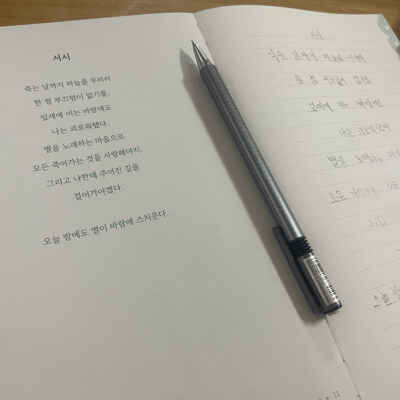 서시
죽는 날까지 하늘을 우러러
한 점 부끄럼이 없기를,
잎새에 이는 바람에도
나는 괴로워했다.
별을 노래하는 마음으로
모든 죽어가는 것을 사랑해야지.
그리고 나한테 주어진 길을
걸어가야겠다.
오늘 밤에도 별이 바람에 스치운다.
서시
죽는 날까지 하늘을
한 점 부끄럼이
잎새에 이는 바람에도
나는
별을 노래하는
모든
그리고
오늘
13